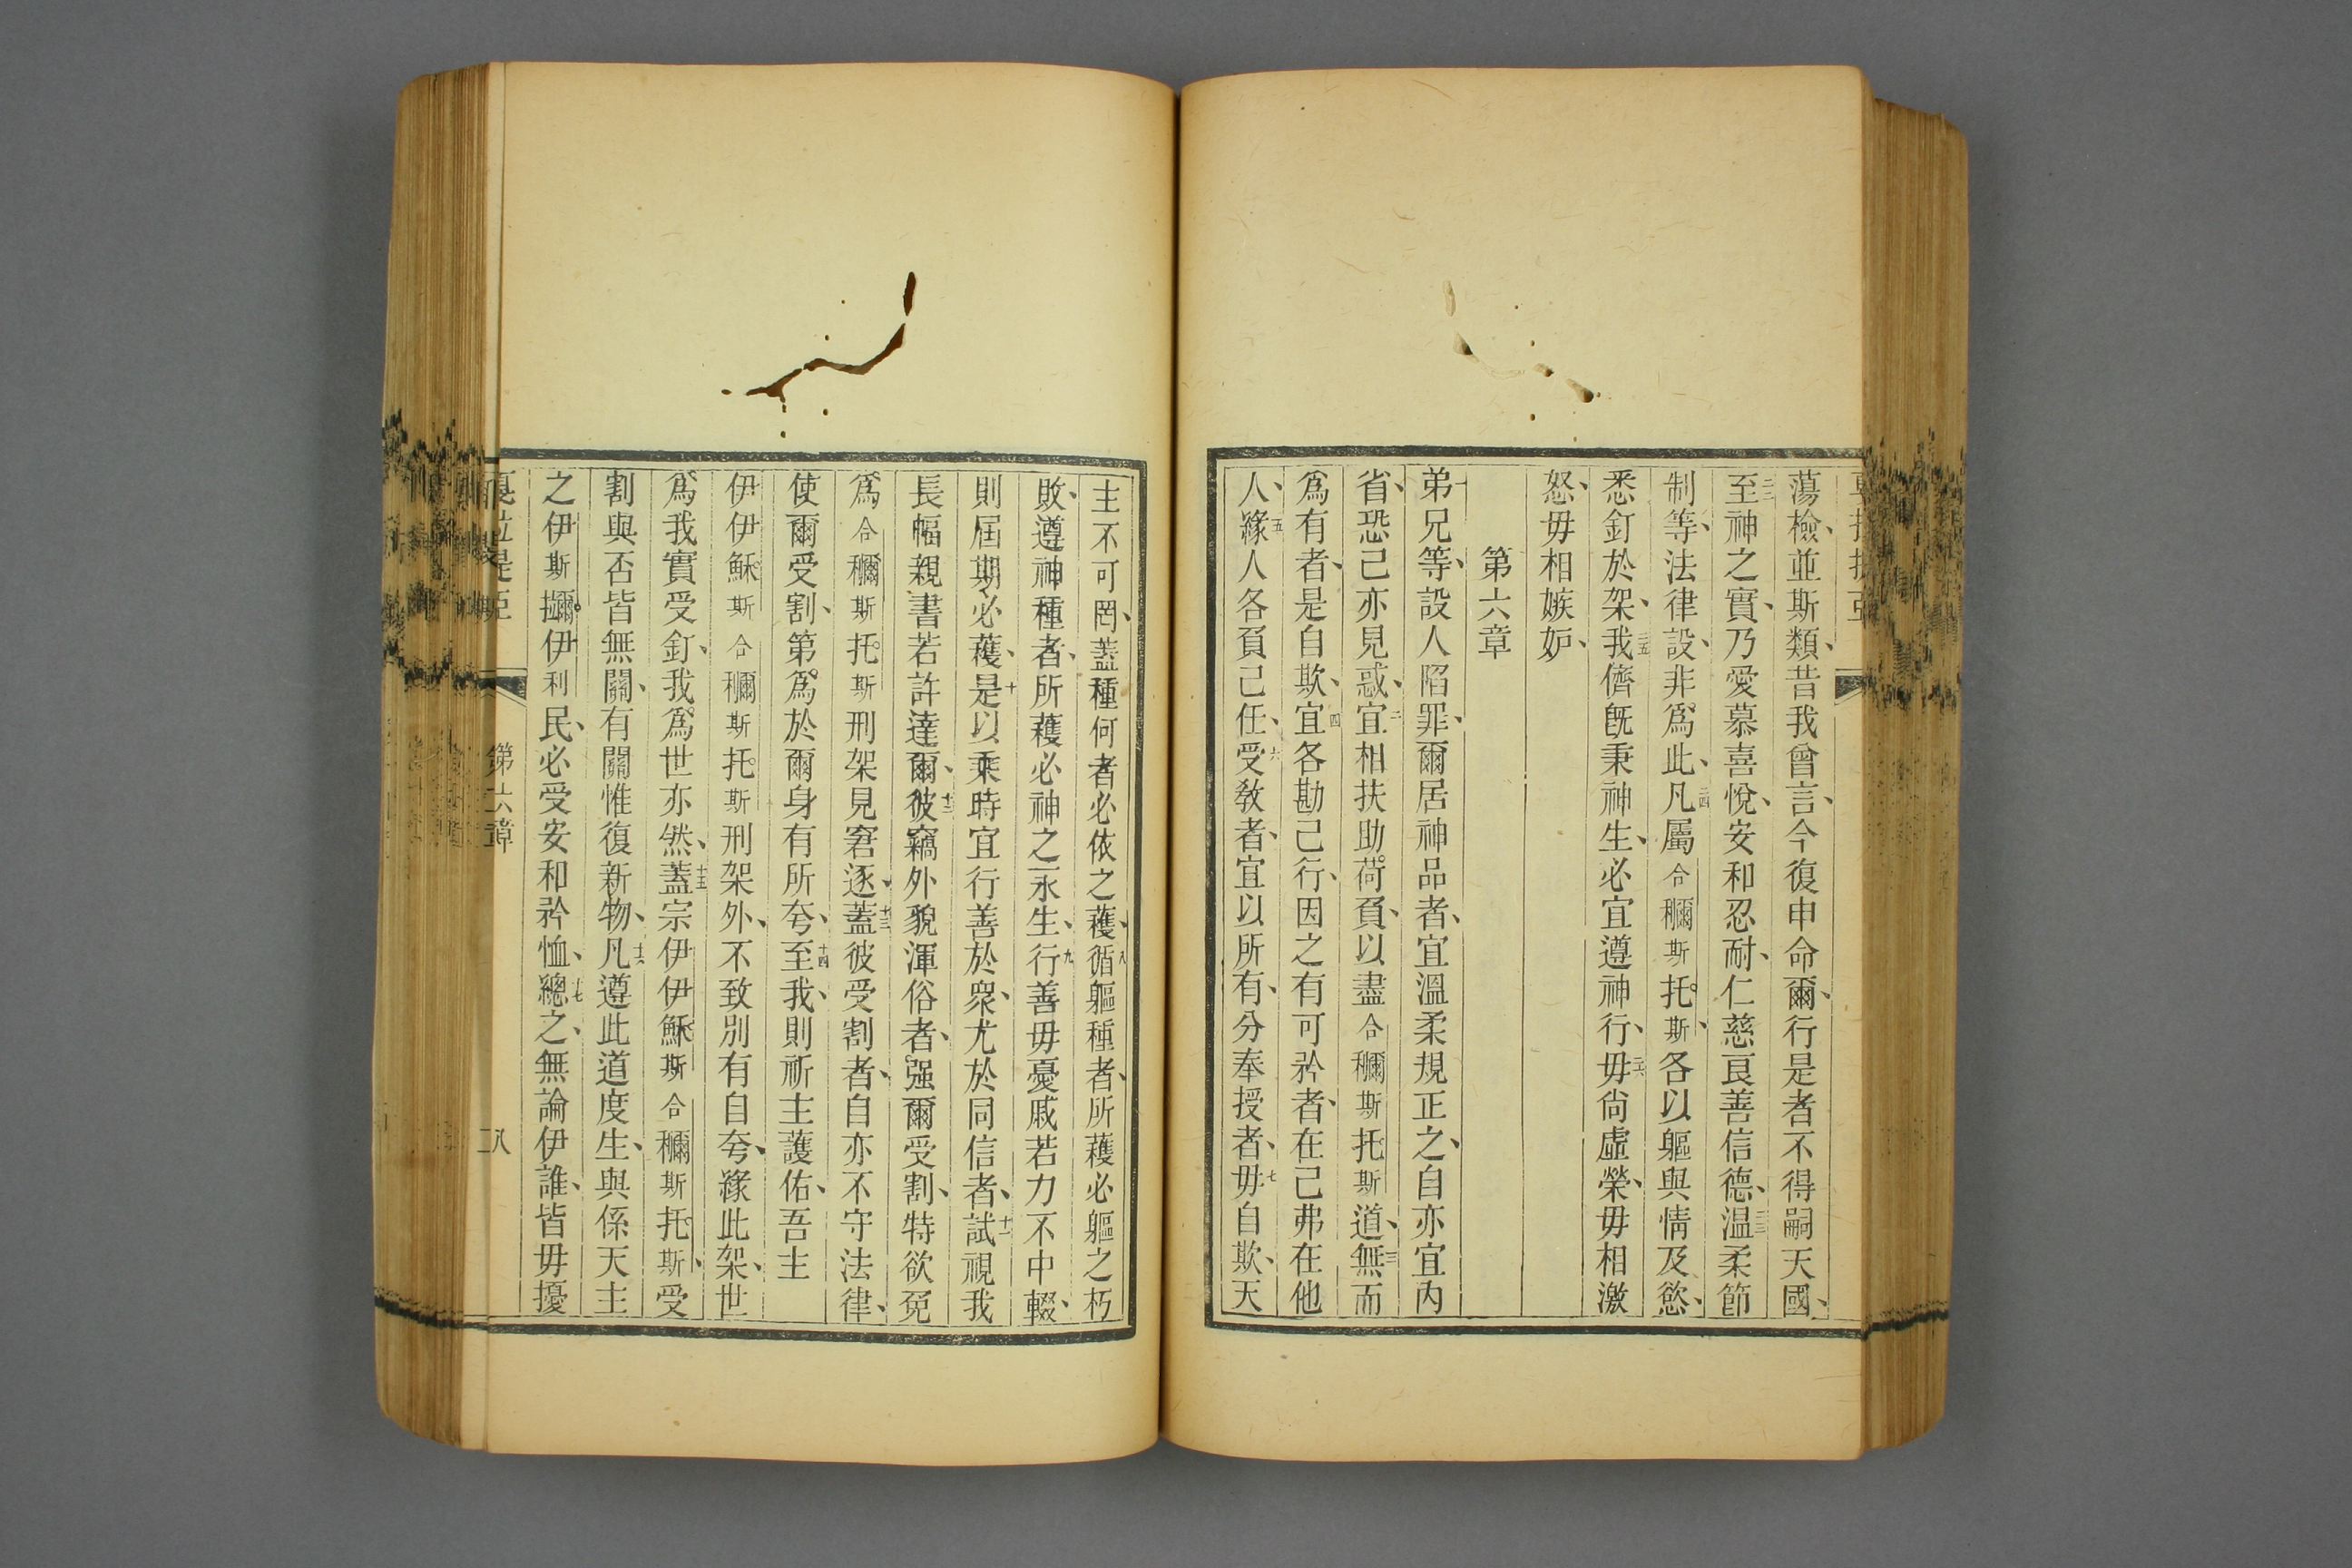 蕩檢、並斯類、昔我曾言、今復申命爾、行是者不得嗣天國、
至二二神之實、乃愛慕喜悅、安和忍耐、仁慈良善信德、二三温柔節
制等、法律設、非爲此、二四凡屬合穪斯托斯、各以軀與情及慾、
悉釘於架、二五我儕旣秉神生、必宜遵神行、二六毋尙虛榮、毋相激
怒、毋相嫉妒、
第六章
一弟兄等、設人陷罪、爾居神品者、宜溫柔規正之、自亦宜內
省、恐己亦見惑、二宜相扶助荷負、以盡合穪斯托斯道、三無而
爲有者、是自欺、四宜各勘己行、因之有可矜者、在己弗在他
人、五緣人各負己任、六受敎者、宜以所有、分奉授者、七毋自欺、天
主不可罔、蓋種何者必依之穫、八循軀種者、所穫必軀之朽
敗、遵神種者、所穫必神之永生、九行善毋憂戚若力不中輟、
則屆期必穫、十是以乘時宜行善於衆、尤於同信者、十一試視我
長幅親書若許達爾、十二彼竊外貌渾俗者、强爾受割、特欲免
爲合穪斯托斯刑架見窘逐、十三蓋彼受割者、自亦不守法律、
使爾受割、第爲於爾身有所夸、十四至我、則祈主護佑、吾主
伊伊穌斯合穪斯托斯刑架外、不致別有自夸、緣此架、世
爲我實受釘、我爲世亦然、十五蓋宗伊伊穌斯合穪斯托斯、受
割與否皆無關、有關惟復新物、十六凡遵此道度生、與係天主
之伊斯𢹂伊利民、必受安和矜恤、十七總之、無論伊誰、皆毋擾
第六章
八